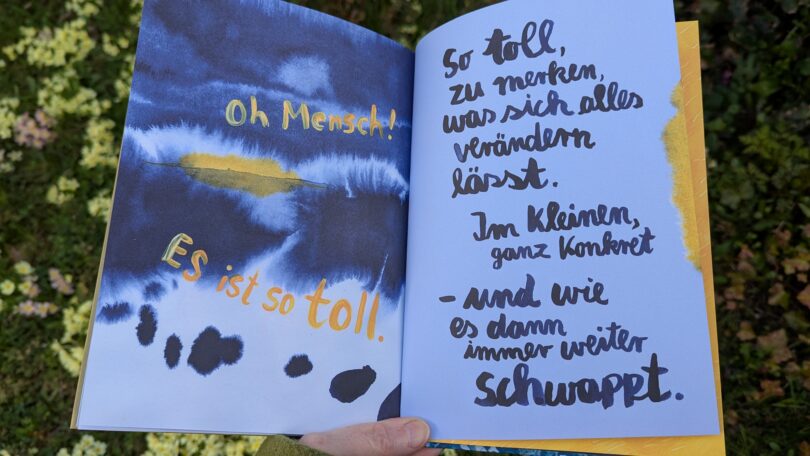 Oh Mensch!
Es ist so toll.
So toll,
zu merken,
was sich alles
verändern
lässt.
Im Kleinen,
ganz Konkret
– und wie
es dann
immer weiter
schwappt.